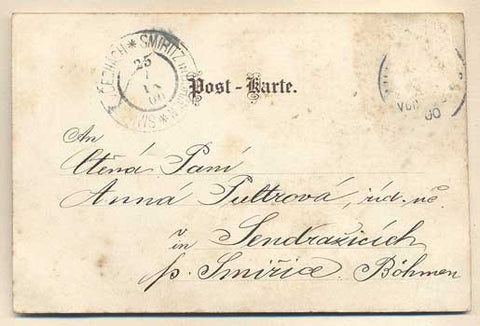 ČECHÁCH * SMIRITZ IN
25
00
Post-Karte.
00
An
Ctěná Paní
Anná Pultrová, říd. uč.
in
Sendražicích
p. Smiřice, Böhmen